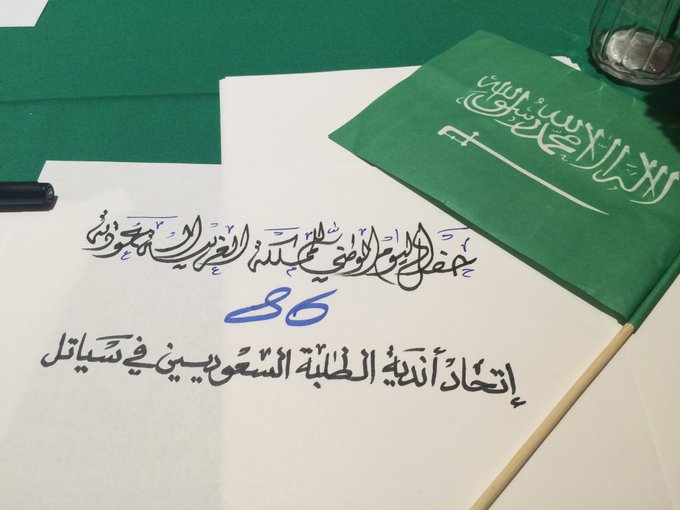 حفل اليوم الوطني للمملكة العربية السعودية
86
إتحاد أندية الطلبة السعوديين في سياتل
لا إله إلا الله محمد رسول الله